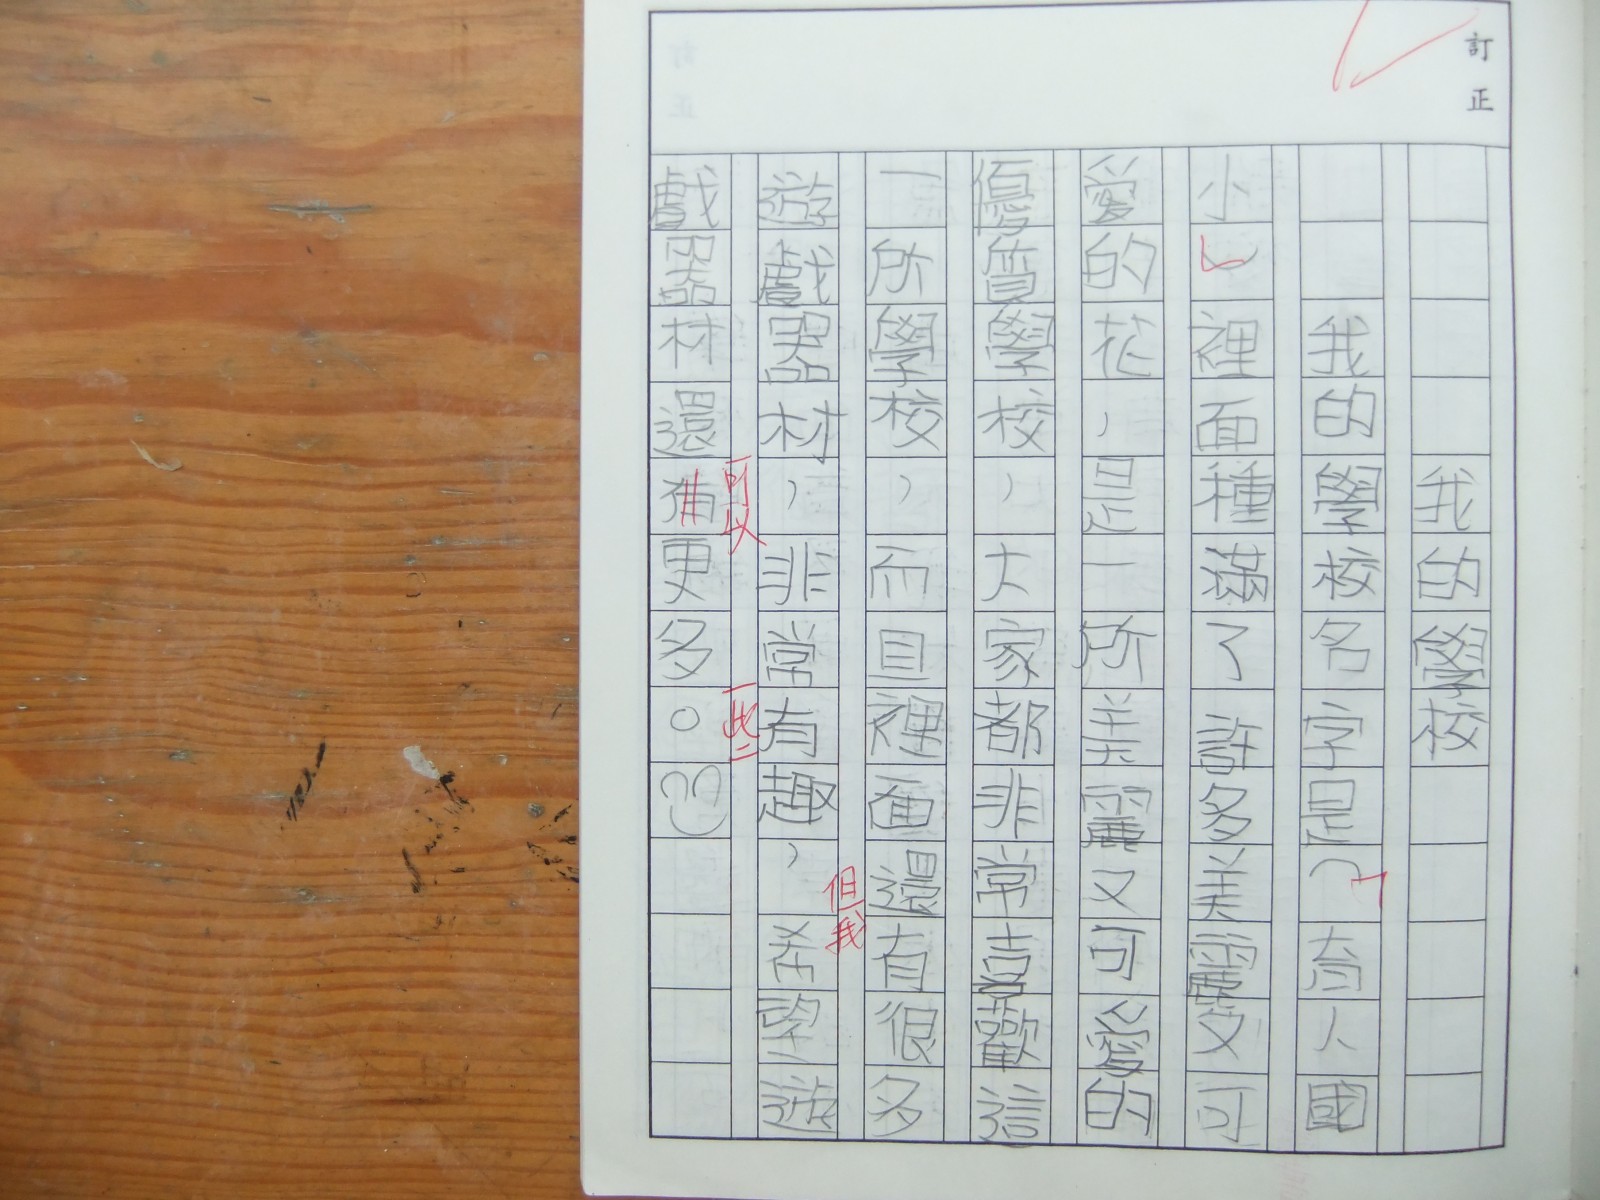 訂正
我的學校
我的學校名字是「育人國
小」裡面種滿了許多美麗又可
愛的花，是一所美麗又可愛的
優質學校，大家都非常喜歡這
一所學校，而且裡面還有很多
遊戲器材，非常有趣，希望遊
但我
戲器材還有更多。
可以
一些